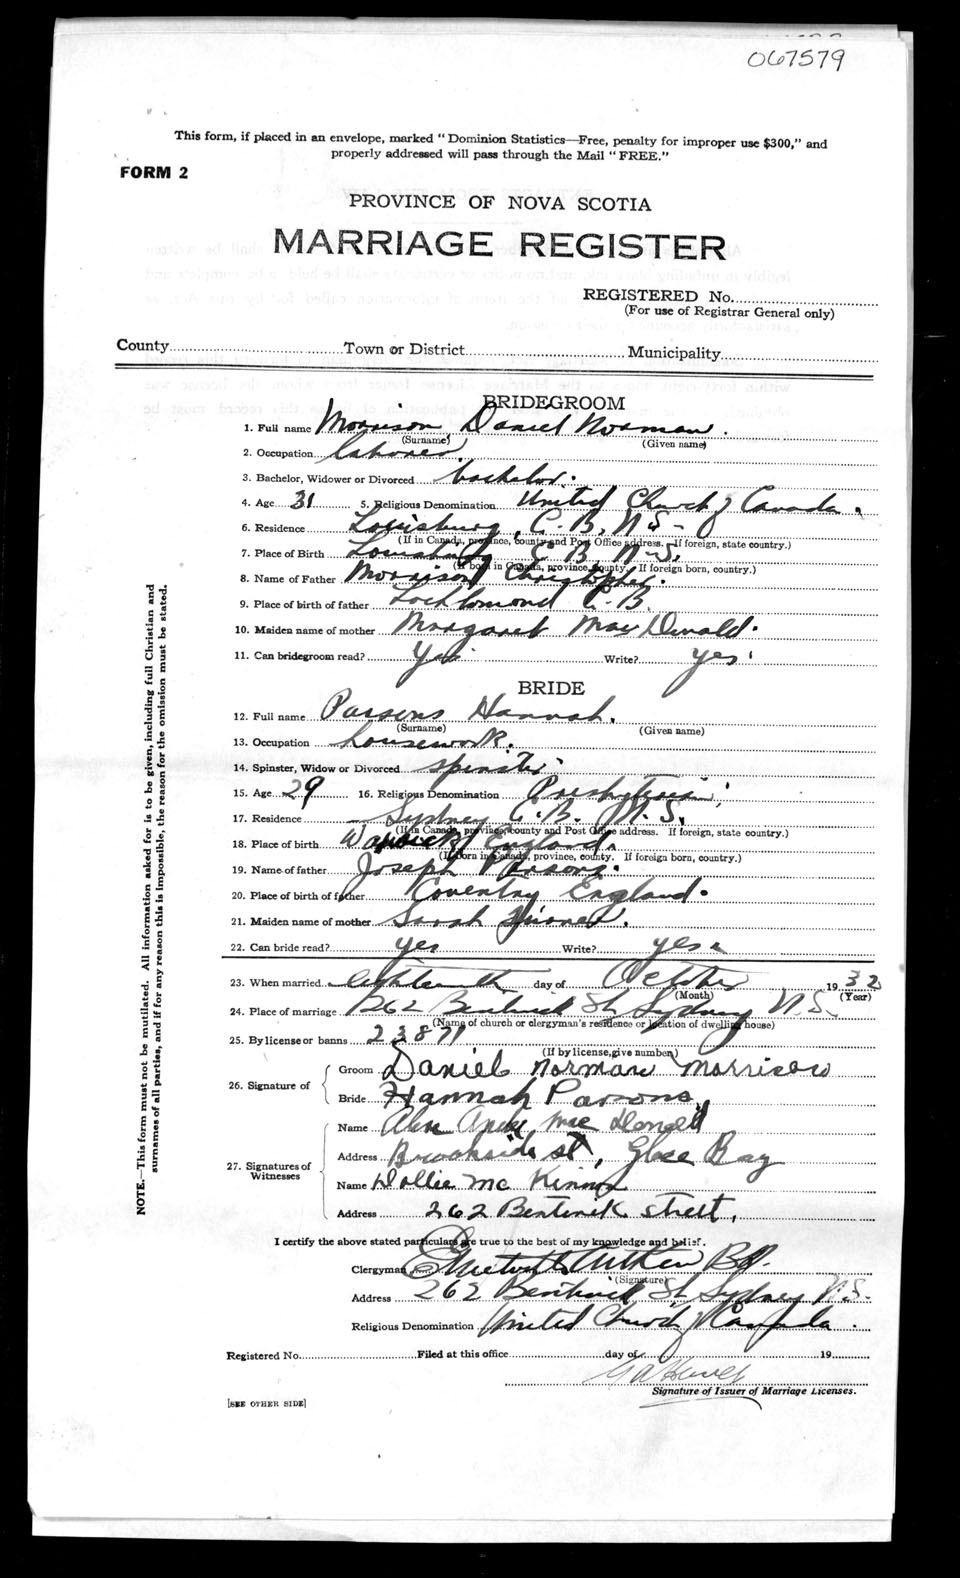 067579
This form, if placed in an envelope, marked "Dominion Statistics—Free, penalty for improper use $300," and
properly addressed will pass through the Mail "FREE."
FORM 2
PROVINCE OF NOVA SCOTIA
MARRIAGE REGISTER
REGISTERED No.
(For use of Registrar General only)
County Town or District Municipality
BRIDEGROOM
1. Full name Morrison Daniel Norman.
(Surname) (Given name)
2. Occupation laborer
3. Bachelor, Widower or Divorced bachelor.
4. Age 31 5. Religious Denomination United Church of Canada.
6. Residence Louisburg, C.B. N.S.
(If in Canada, province, county and Post Office address. If foreign, state country.)
7. Place of Birth Louisburg C.B. N.S.
(If born in Canada, province, county. If foreign born, country.)
8. Name of Father Morrison Christopher.
9. Place of birth of father Loch Lomond C.B.
10. Maiden name of mother Margaret MacDonald.
11. Can bridegroom read? Yes Write? yes
BRIDE
12. Full name Parsons Hannah.
(Surname) (Given name)
13. Occupation housework.
14. Spinster, Widow or Divorced spinster
15. Age 29 16. Religious Denomination Presbyterian
17. Residence Sydney C.B. N.S.
(If in Canada, province, county and Post Office address. If foreign, state country.)
18. Place of birth England.
(If born in Canada, province, county. If foreign born, country.)
19. Name of father Joseph Parsons.
20. Place of birth of father Coventry England.
21. Maiden name of mother Sarah
22. Can bride read? yes Write? yes
23. When married eighteenth day of October 1932
(Month) (Year)
24. Place of marriage 262 Bentinck St Sydney N.S.
(Name of church or clergyman's residence or location of dwelling house)
25. By license or banns 23871
(If by license, give number)
26. Signature of Groom Daniel Norman Morrison
Bride Hannah Parsons
27. Signatures of Witnesses Name Mc Donald
Address Brookside St, Glace Bay
Name Dollie Mc Kinnon
Address 262 Bentinck street,
I certify the above stated particulars are true to the best of my knowledge and belief.
Clergyman Aitken
(Signature)
Address 262 Bentinck St Sydney N.S.
Religious Denomination United Church of Canada.
Registered No. Filed at this office day of 19
Signature of Issuer of Marriage Licenses.
[SEE OTHER SIDE]
NOTE.—This form must not be mutilated. All information asked for is to be given, including full Christian and
surnames of all parties, and if for any reason this is impossible, the reason for the omission must be stated.